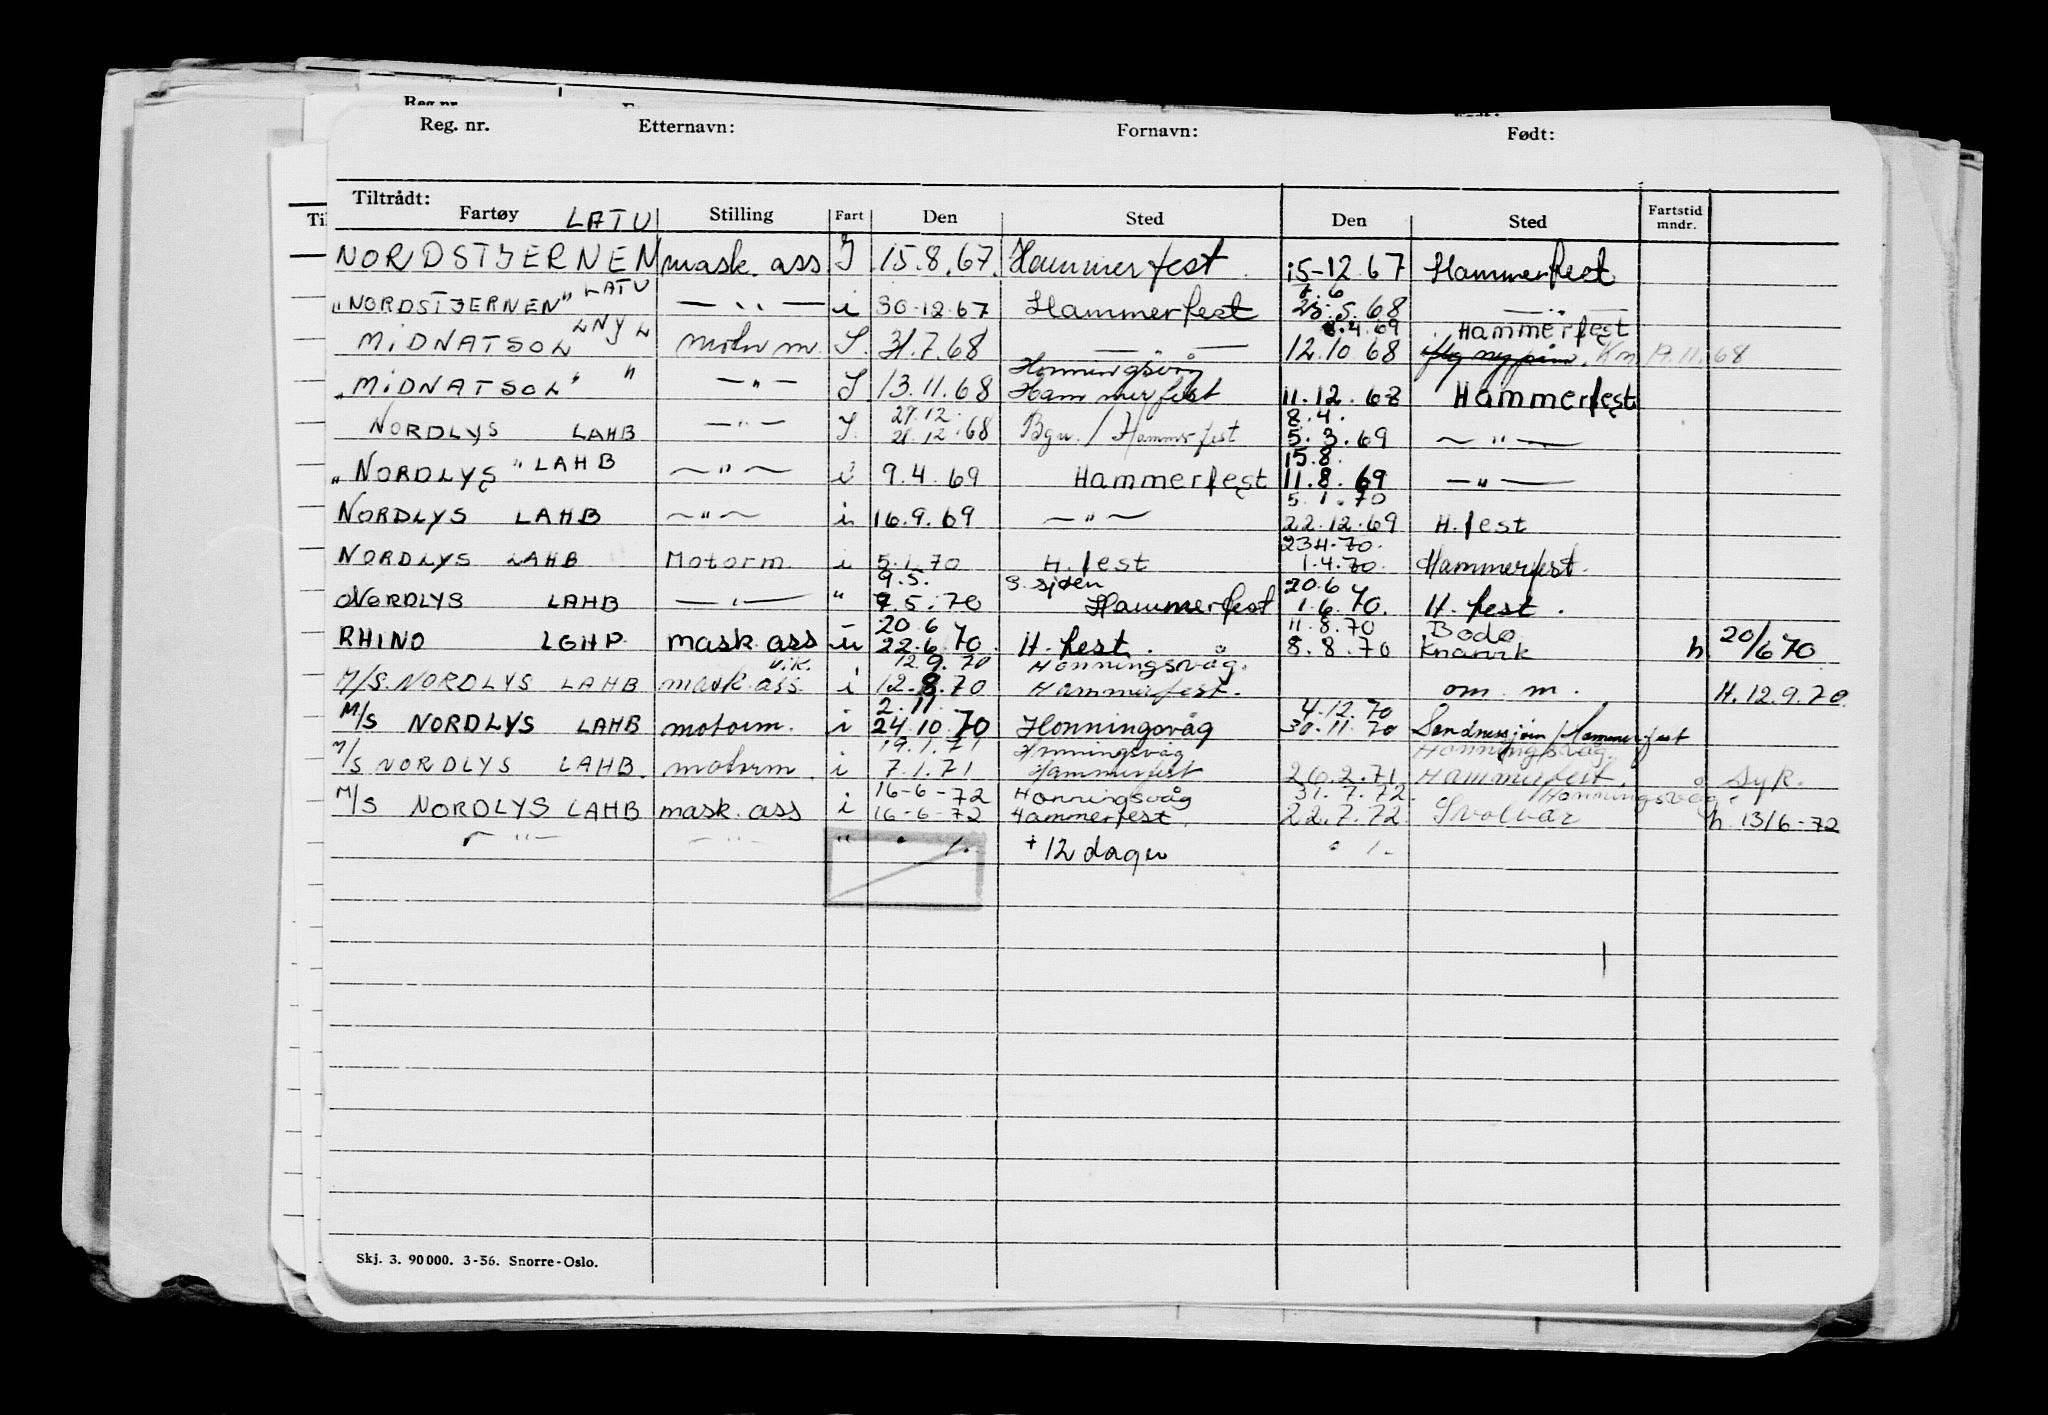 Reg. nr. Etternavn: Fornavn: Født:
Tiltrådt:
Fartøy LATU Stilling Fart Den Sted Den Sted Fartstid mndr.
NORDSTJERNEN mask. ass J 15.8.67. Hammerfest 15-12.67 Hammerfest
"NORDSTJERNEN" LATU — " — i 30.12.67 Hammerfest 23.5.68 — " —
8.4.69 Hammerfest
MIDNATSOL LNJL motorm. J. 31.7.68 — " — 12.10.68 Km 19.11.68
Honningsvåg
"MIDNATSOL" " — " — J 13.11.68 Hammerfest 11.12.68 Hammerfest
27.12. 8.4.
NORDLYS LAHB — " — J. 21.12.68 Bgn. / Hammerfest 5.3.69 — " —
15.8.
"NORDLYS" LAHB — " — i 9.4.69 Hammerfest 11.8.69 — " —
5.1.70
NORDLYS LAHB — " — i. 16.9.69 — " — 22.12.69 H.fest
23.4.70.
NORDLYS LAHB Motorm i 5.1.70 H.fest 1.4.70. Hammerfest.
9.5. S.sjøen 20.6
NORDLYS LAHB — " — " 7.5.70 Hammerfest 1.6.70. H.fest.
20.6 11.8.70 Bodø
RHINO LGHP. mask ass u 22.6.70. H.fest. 8.8.70 Knarvik h 20/6 70
vik. 12.9.70 Honningsvåg.
M/S. NORDLYS LAHB mask. ass. i 12.8.70 Hammerfest. om. m. H.12.9.70
2.11. 4.12.70
M/S NORDLYS LAHB motorm. i 24.10.70 Honningsvåg 30.11.70 Sandnessjøen / Hammerfest
19.1.71 Honningsvåg Honningsvåg.
M/S NORDLYS LAHB. motorm. i 7.1.71 Hammerfest 26.2.71 Hammerfest. Syk.
16-6-72 Honningsvåg 31.7.72. / Honningsvåg.
M/S NORDLYS LAHB mask. ass i 16-6-72 Hammerfest. 22.7.72. Svolvær h. 13/6-72
— " — — " — " " /. + 12 dager " /.
Skj. 3. 90 000. 3-56. Snorre-Oslo.